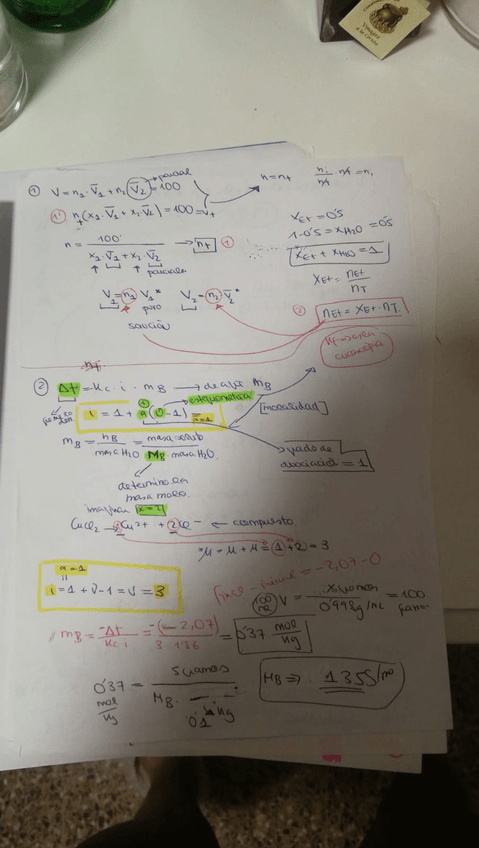 ① V = n₁·V̄₁ + n₂ V̄₂ = 100
parcial
n = nₜ
①' nₜ(x₁·V̄₁ + x₂·V̄₂) = 100 = Vₜ
n = 100 / (x₁·V̄₁ + x₂·V̄₂) → nₜ ①
parciales
xEt = 0'5
1-0'5 = xH₂O = 0'5
xEt + xH₂O = 1
xEt = nEt / nT
V₁ = n₁ V₁* V₂ = n₂ V̄₂*
puro
② nEt = xEt · nT
solución
② Δt = -Kc · i · mB → despejé mB
estequiometría
i = 1 + α(ν-1) =
α=1
[molalidad]
mB = nB / masa H₂O = masa solub / MB · masa H₂O
grado de
disociación = 1
determino la
masa molar
imagina x=2
CuCl₂ → Cu²⁺ + 2Cl⁻ ← compuesto
= 1+2 = 3
α=1
i = 1 + ν - 1 = ν = 3
final - inicial = -2,07-0
V = x gramos / 0'998 g/mL = 100 gramos
mB = -Δt / Kc i = -(-2,07) / 3·1'86 = 0'37 mol/kg
0'37 mol/kg = 5 gramos / MB · 0'1 kg
MB ⇒ 135 g/mol